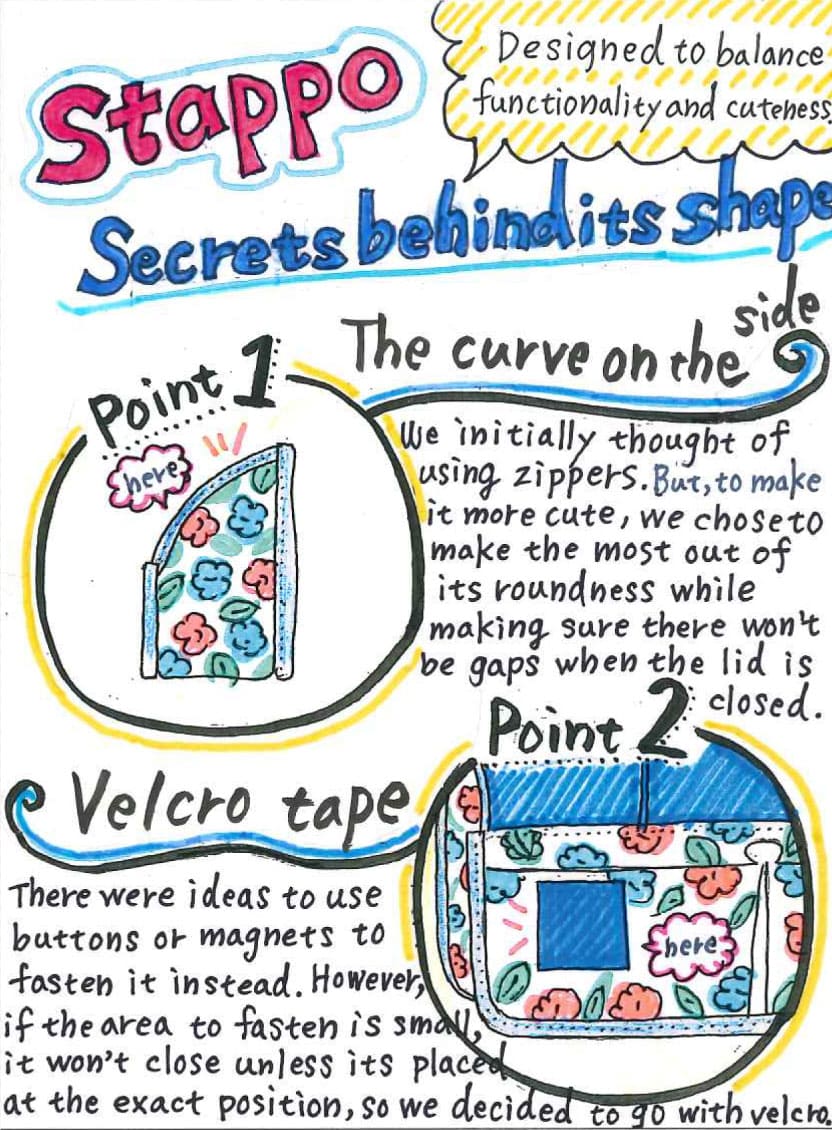 Stappo
Designed to balance
functionality and cuteness.
Secrets behind its shape
Point 1
The curve on the side
here
We initially thought of
using zippers. But, to make
it more cute, we chose to
make the most out of
its roundness while
making sure there won't
be gaps when the lid is
closed.
Point 2
Velcro tape
here
There were ideas to use
buttons or magnets to
fasten it instead. However,
if the area to fasten is small,
it won't close unless its placed
at the exact position, so we decided to go with velcro.